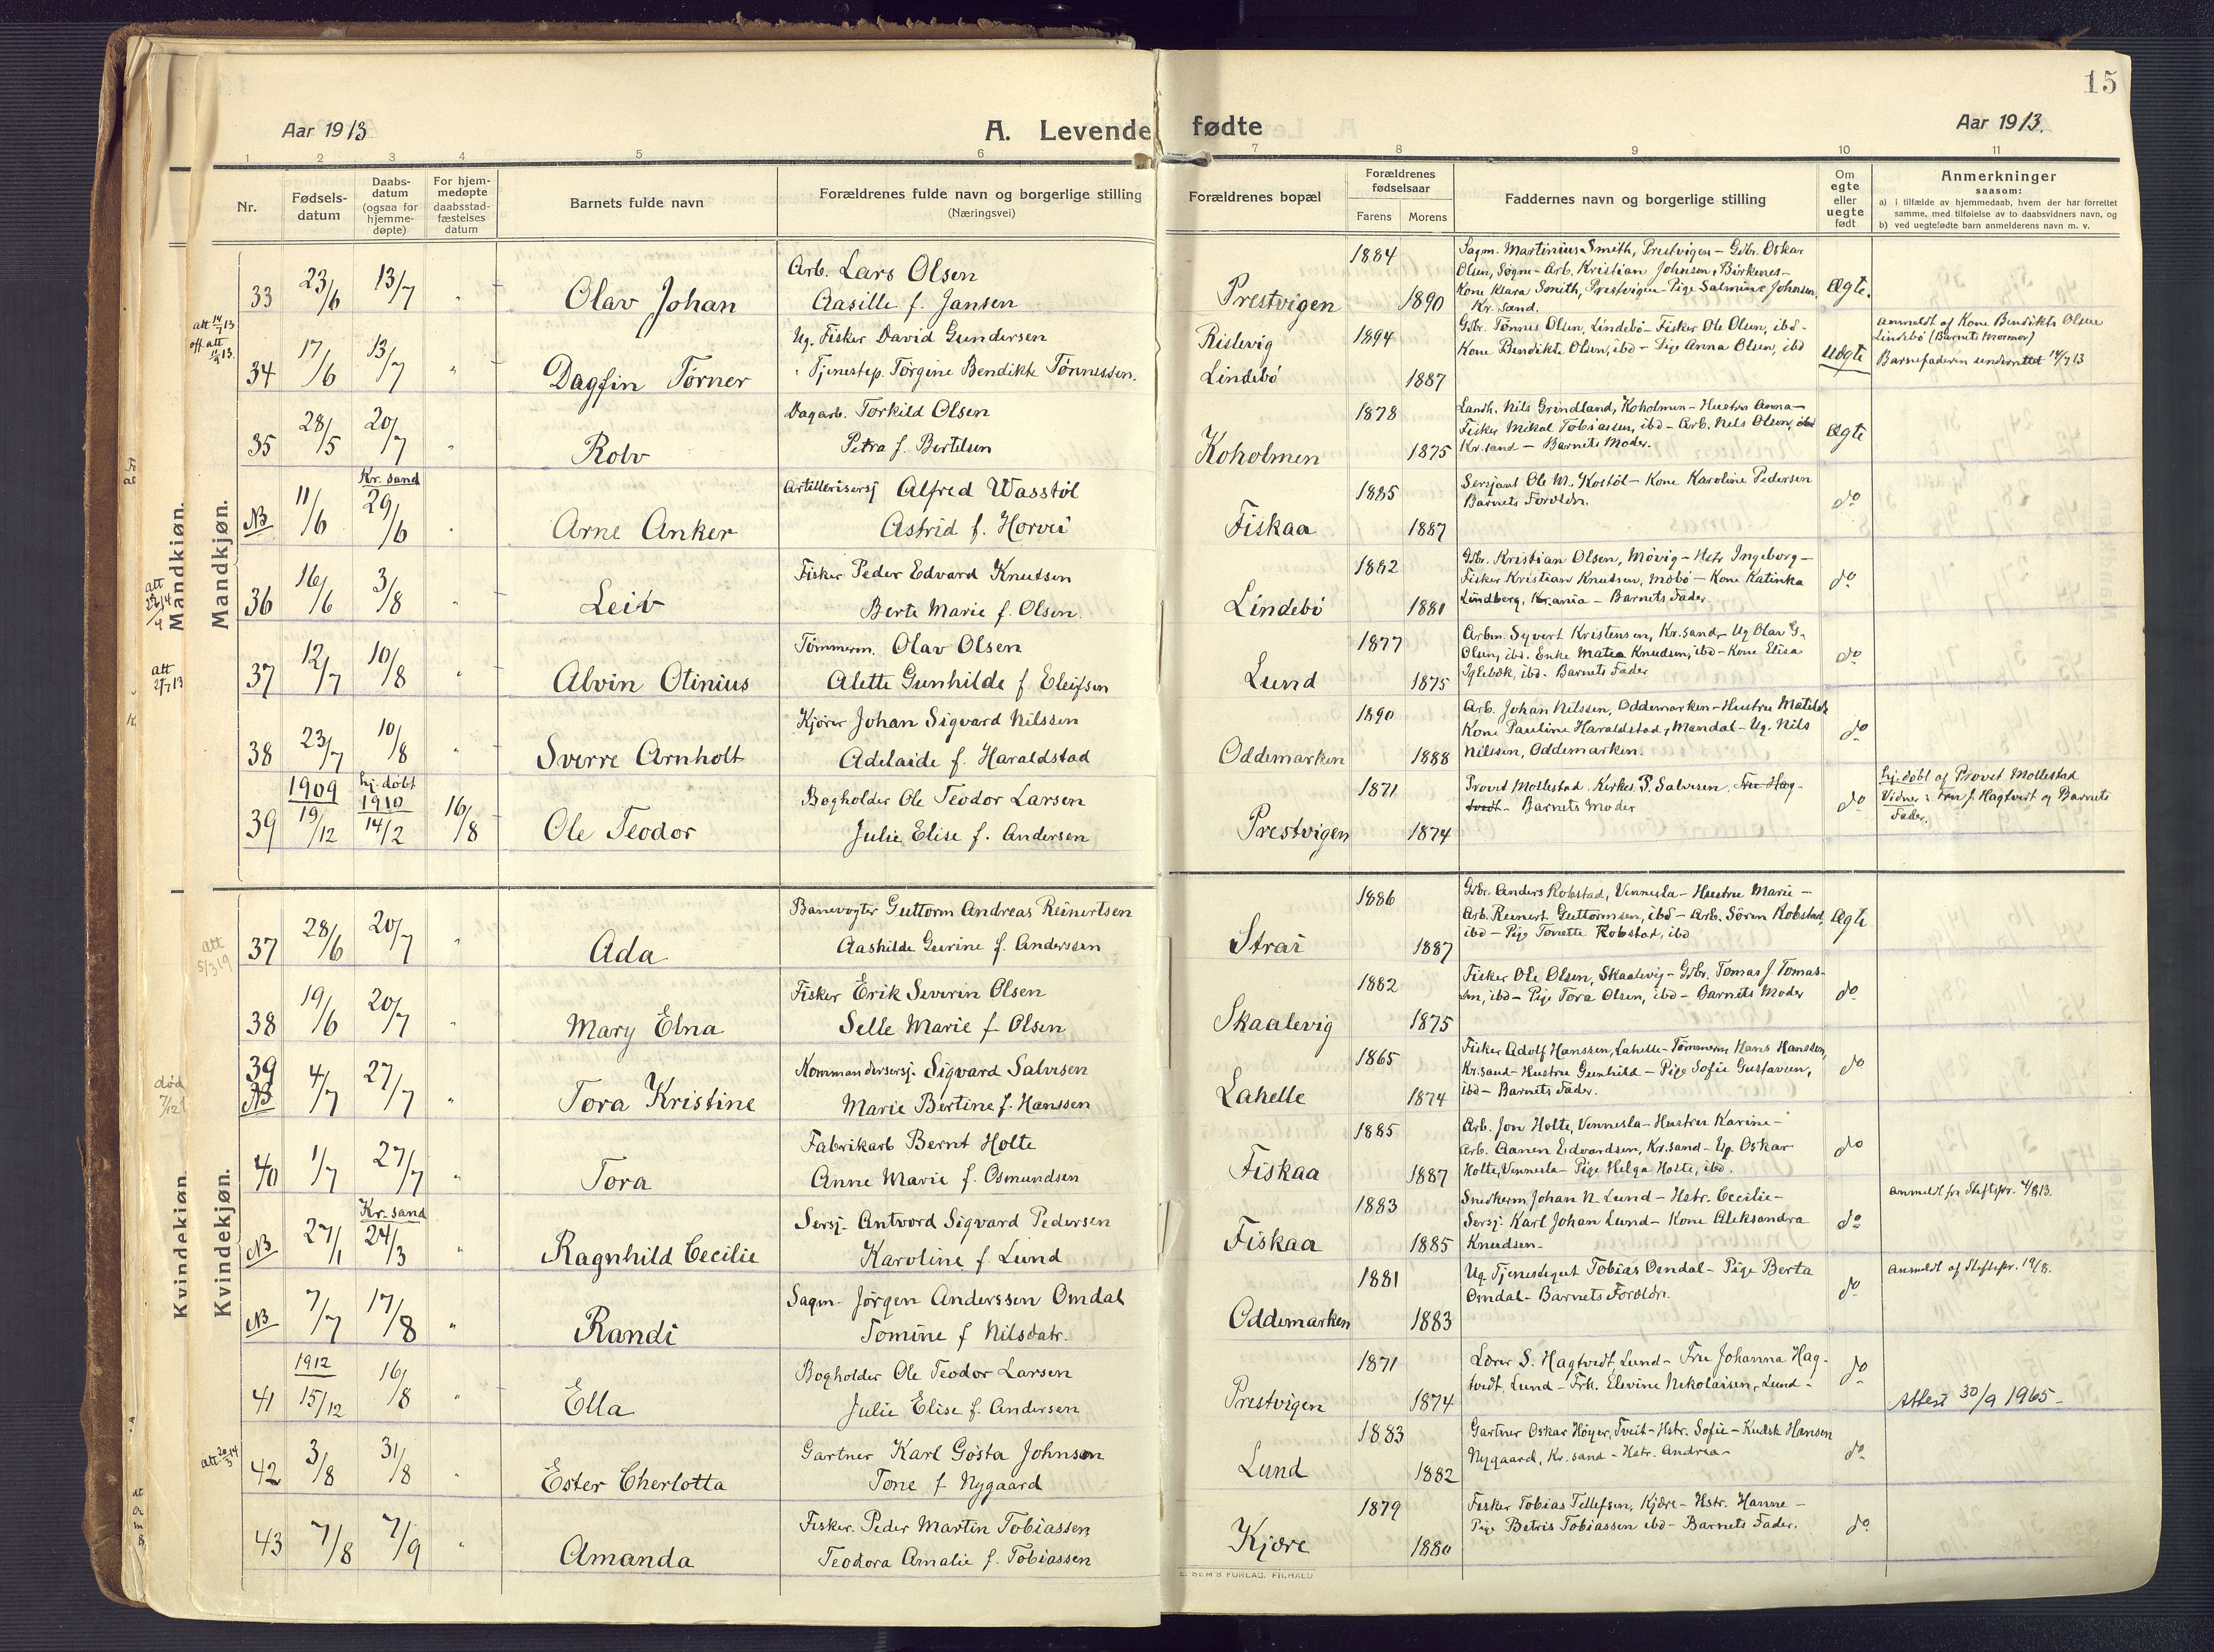 15
Aar 1913
A. Levende fødte
Aar 1913.
1 2 3 4 5 6 7 8 9 10 11
Nr.
Fødsels-
datum
Daabs-
datum
(ogsaa for
hjemme-
døpte)
For hjem-
medøpte
daabsstad-
fæstelses
datum
Barnets fulde navn
Forældrenes fulde navn og borgerlige stilling
(Næringsvei)
Forældrenes bopæl
Forældrenes
fødselsaar
Farens Morens
Faddernes navn og borgerlige stilling
Om
egte
eller
uegte
født
Anmerkninger
saasom:
a) i tilfælde av hjemmedaab, hvem der har forrettet
samme, med tilføielse av to daabsvidners navn, og
b) ved uegtefødte barn anmelderens navn m. v.
Mandkjøn.
Mandkjøn.
33 23/6 13/7 " Olav Johan
Arb. Lars Olsen
Aasille f. Jansen
Prestvigen 1884 1890
Sagm. Martinius Smith, Prestvigen - Gdbr. Oskar
Olsen, Søgne - Arb. Kristian Johnsen, Birkenes -
Kone Klara Smith, Prestvigen - Pige Salmine Johnsen,
Kr. Sand.
Ægte.
att 14/7 13
off. att
34 17/6 13/7 " Dagfin Tørner
Ug. Fisker David Gundersen
" Tjenestep. Tørgine Bendikte Tønnessen.
Rislevig
Lindebö 1894 1887
Gdbr. Tønnes Olsen, Lindebö - Fisker Ole Olsen, ibd -
Kone Bendikte Olsen, ibd - Pige Anna Olsen, ibd
Uægte
Anmeldt af Kone Bendikte Olsen
Lindebö (Barnets Mormor)
Barnefaderen underrettet 14/7 13
35 28/5 20/7 " Rolv
Dagarb. Torkild Olsen
Petra f. Bertelsen
Koholmen 1878 1875
Landh. Nils Grindland, Koholmen - Hustru Anna -
Fisker Mikal Tobiassen, ibd - Arb. Nels Olsen, ibd
Kr.sand - Barnets Moder.
Ægte
NB 11/6 Kr. sand 29/6 " Arne Anker
Artillerisersj Alfred Wasstøl
Astrid f. Horvei
Fiskaa 1885 1887
Sersjant Ole M. Kostöl - Kone Karoline Pedersen
Barnets Forældre.
do
36 16/6 3/8 " Leiv
Fisker Peder Edvard Knutsen
Berte Marie f. Olsen.
Lindebö 1882 1881
Gdbr. Kristian Olsen, Møvig - Hstr Ingeborg -
Fisker Kristian Knudsen, Møbö - Kone Katinka
Lindberg, Kr.ania - Barnets Fader.
do
att
2/7 13
37 12/7 10/8 " Alvin Otinius
Tømmerm. Olav Olsen
Alette Gunhilde f. Eleifsen
Lund 1877 1875
Arbm. Syvert Kristensen, Kr.sand - Ug Olav G.
Olsen, ibd. Enke Matea Knudsen, ibd - Kone Elisa
Iglebæk, ibd - Barnets Fader
do
38 23/7 10/8 " Sverre Arnholt
Kjører Johan Sigvard Nilssen
Adelaide f. Haraldstad
Oddemarken 1890 1888
Arb. Johan Nilssen, Oddemarken - Hustru Matilde
Kone Pauline Haraldstad, Mandal - Ug. Nils
Nilssen, Oddemarken.
do
39 1909 19/12 hj. døbt 1910 14/2 16/8 Ole Teodor
Bogholder Ole Teodor Larsen
Julie Elise f. Andersen
Prestvigen 1871 1874
Provst Mollestad. Kirkes. P. Salvesen. Fru Hag-
tvedt - Barnets Moder
do
hj. døbt af Provst Mollestad
Vidner: Fru J. Hagtvedt og Barnets
Fader.
Kvindekjøn.
Kvindekjøn.
att
5/3 19
37 28/6 20/7 " Ada
Banevogter Guttorm Andreas Reinertsen
Aashilde Gurine f. Anderssen
Strai 1886 1887
Gdbr. Anders Robstad, Vennesla - Hustru Marie -
Arb. Reinert Guttormsen, ibd - Arb. Søren Robstad,
ibd - Pige Tonette Robstad, ibd
Ægte
38 19/6 20/7 " Mary Elna
Fisker Erik Severin Olsen
Selle Marie f. Olsen
Skaalevig 1882 1875
Fisker Ole Olsen, Skaalevig - Gdbr. Tomas J. Tomas-
sen, ibd - Pige Tora Olsen, ibd - Barnets Moder
do
død
7/12
39 NB 4/7 27/7 " Tora Kristine
Kommandersersj. Sigvard Salvesen
Marie Bertine f. Hanssen
Lahelle 1865 1874
Fisker Adolf Hanssen, Lahelle - Tømmerm Hans Hanssen,
Kr.sand - Hustru Gunhild - Pige Sofie Gustavsen,
ibd - Barnets Fader.
do
40 1/7 27/7 " Tora
Fabrikarb Bernt Holte
Anne Marie f. Osmundsen
Fiskaa 1885 1887
Arb. Jon Holte, Vennesla - Hustru Karine -
Arb. Aanen Edvardsen, Kr.sand - Ug. Oskar
Holte, Vennesla - Pige Helga Holte, ibd.
do
NB 27/1 Kr. sand 24/3 " Ragnhild Cecilie
Sersj. Antvord Sigvard Pedersen
Karoline f. Lund
Fiskaa 1883 1885
Snedkerm. Johan N. Lund - Hstr. Cecilie -
Sersj. Karl Johan Lund - Kone Aleksandra
Knudsen -
do
Anmeldt fra Stiftspr. 4/8 13.
NB 7/7 17/8 " Randi
Sagm. Jørgen Anderssen Omdal
Tomine f Nilsdatr.
Oddemarken 1881 1883
Ug. Tjenestegut Tobias Omdal - Pige Berta
Omdal - Barnets Forældre.
do
Anmeldt af Stiftspr. 19/8.
41 1912 15/12 16/8 " Ella
Bogholder Ole Teodor Larsen
Julie Elise f. Andersen
Prestvigen 1871 1874
Lærer S. Hagtvedt, Lund - Fru Johanna Hag-
tvedt, Lund - Frk. Elevine Nikolaisen, Lund -
do
Attest 30/9 1965 -
att 20/3 14
42 3/8 31/8 " Ester Cherlotta
Gartner Karl Gøsta Johnson
Tone f Nygaard
Lund 1883 1882
Gartner Oskar Höyer, Tveit - Hstr. Sofie - Kudsk Hansen
Nygaard, Kr. sand - Hstr. Andrea -
do
43 7/8 7/9 " Amanda
Fisker. Peder Martin Tobiassen
Teodora Amalie f. Tobiassen
Kjære 1879 1880
Fisker Tobias Tellefsen, Kjære - Hstr. Hanne -
Pige Betris Tobiassen ibd - Barnets Fader.
do